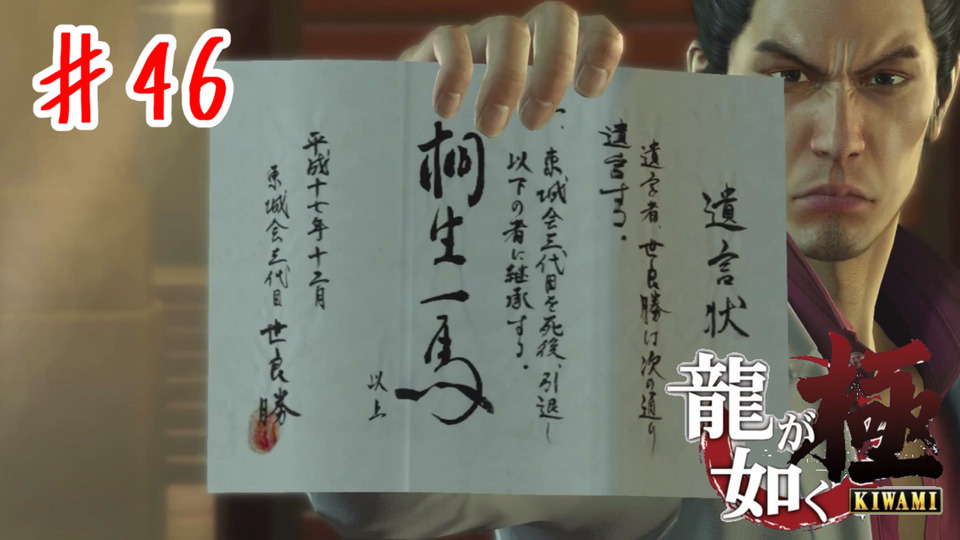 # 46
遺言状
遺言者、世良勝は次の通り
遺言する。
一、東城会三代目を死後、引退し
以下の者に継承する。
桐生一馬
以上
平成十七年十二月
東城会三代目 世良勝
龍が如く 極
KIWAMI